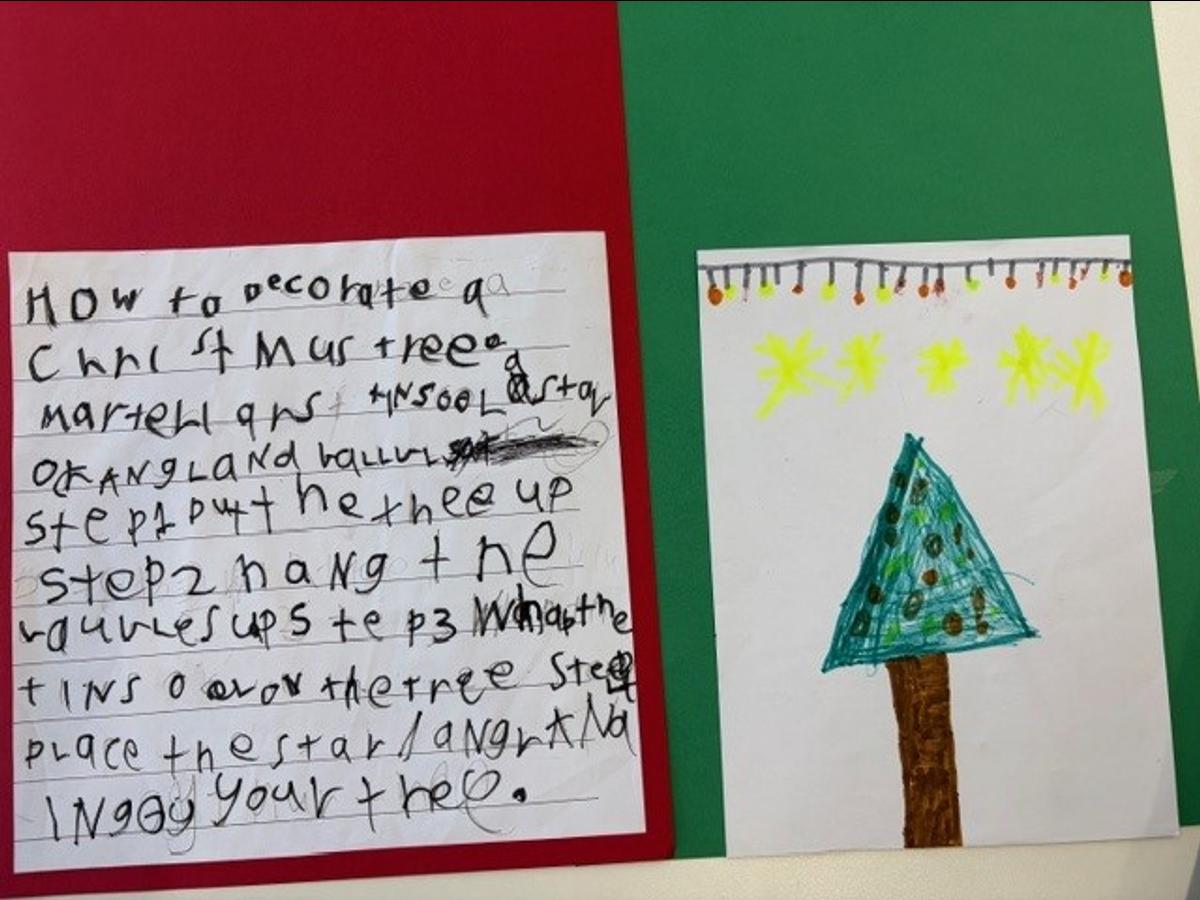 HOW to Decorate a
Chrlst Mus tree
Martell ans tINSOOL a star
OR ANgL aNd
Step1 put the thee up
Step2 haNg the
ups step3 Whapthe
tINSO ovor the tree Step4
place the star/aNgL aNd
INgoy your thee.